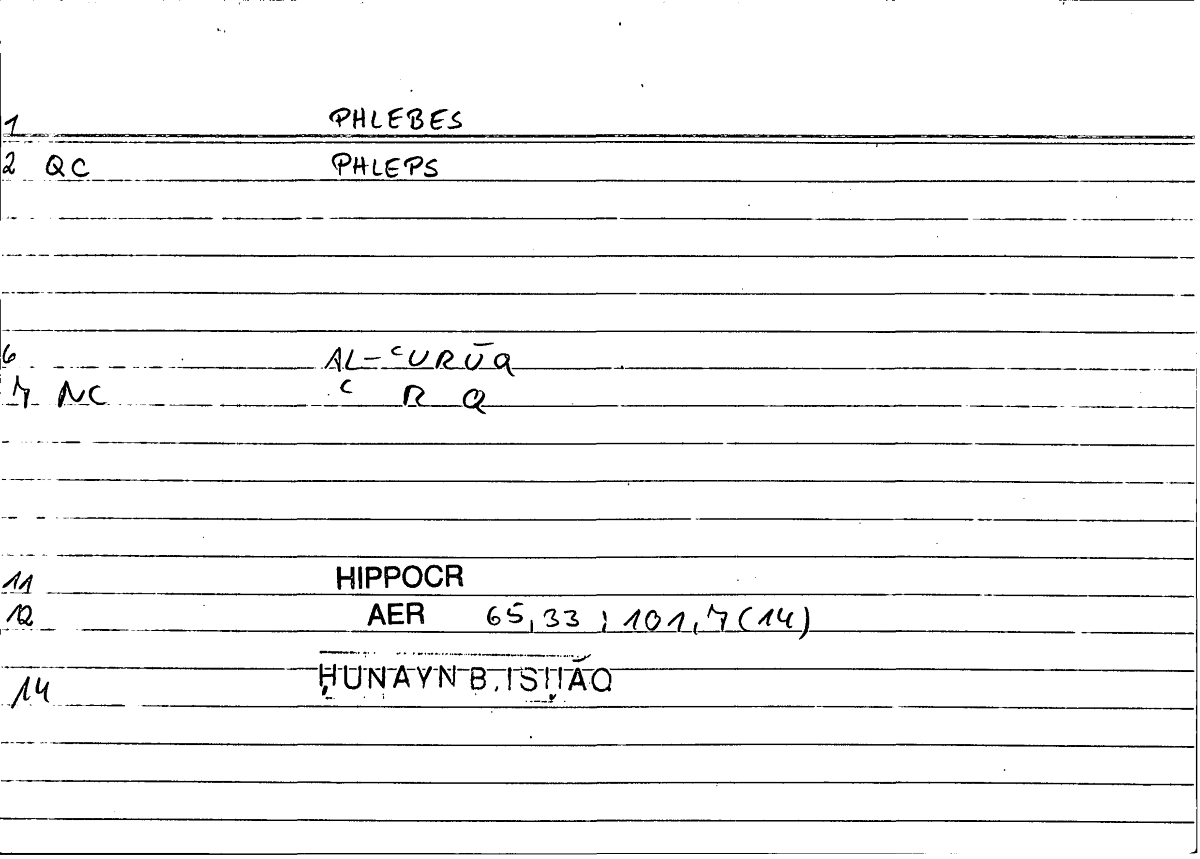 1 PHLEBES
2 QC PHLEPS
6 AL-ʿURŪQ
7 NC ʿ R Q
11 HIPPOCR
12 AER 65,33 ; 101,7 (14)
14 ḤUNAYN B. ISḤĀQ